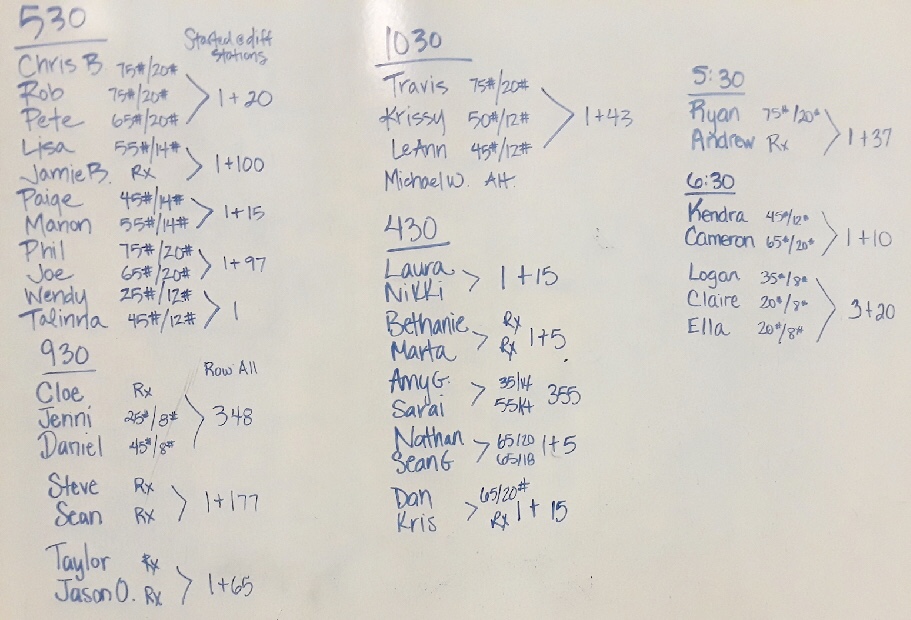 530
Started @ diff stations
Chris B. 75#/20#
Rob 75#/20#
Pete 65#/20#
1+20
Lisa 55#/14#
Jamie B. Rx
1+100
Paige 45#/14#
Manon 55#/14#
1+15
Phil 75#/20#
Joe 65#/20#
1+97
Wendy 25#/12#
Talinna 45#/12#
1
930
Row All
Cloe Rx
Jenni 25#/8#
Daniel 45#/8#
348
Steve Rx
Sean Rx
1+177
Taylor Rx
Jason O. Rx
1+65
1030
Travis 75#/20#
Krissy 50#/12#
LeAnn 45#/12#
1+43
Michael W. Alt.
430
Laura
Nikki
1+15
Bethanie Rx
Marta Rx
1+5
Amy G. 35/14
Sarai 55/14
355
Nathan 65/20
Sean G 65/18
1+5
Dan 65/20#
Kris Rx
1+15
5:30
Ryan 75#/20#
Andrew Rx
1+37
6:30
Kendra 45#/12#
Cameron 65#/20#
1+10
Logan 35#/8#
Claire 20#/8#
Ella 20#/8#
3+20